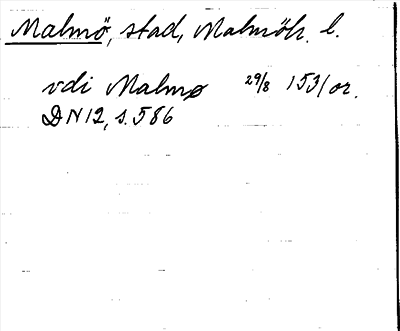 Malmö, stad, Malmöh. l.
vdi Malmø 29/8 1531 or.
DN 12, s. 586